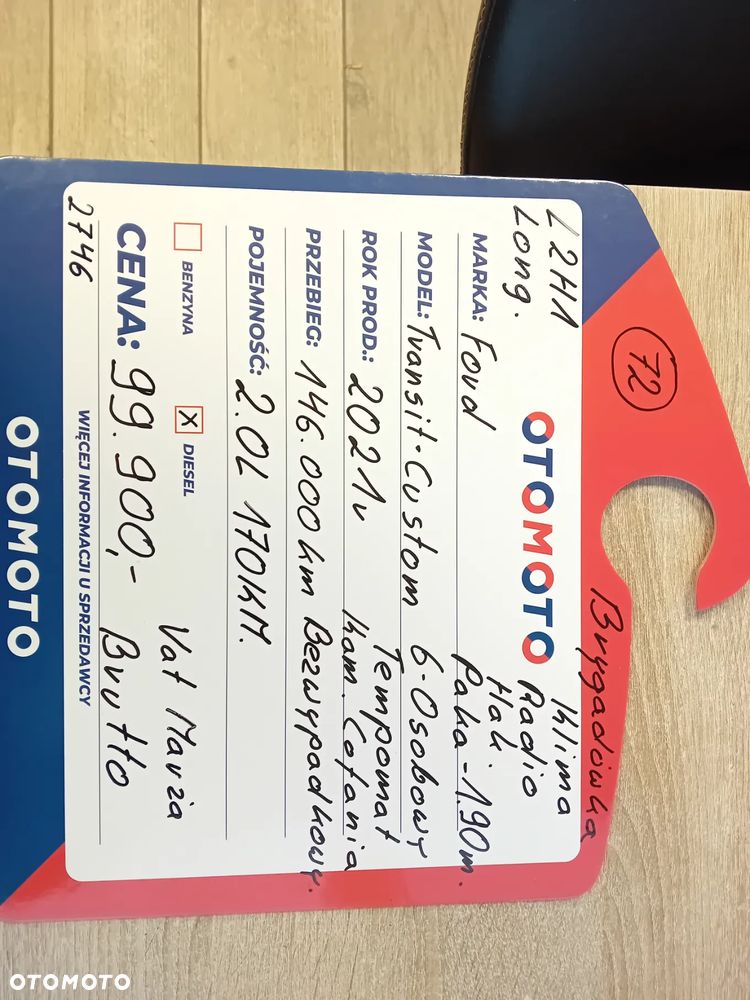 72
Brygadówka
L2H1
Long.
OTOMOTO
Klima
Radio
Hak
Paka - 1.90m.
MARKA: Ford
MODEL: Transit-Custom 6-Osobowy
Tempomat
ROK PROD.: 2021r
Kam. Cofania
PRZEBIEG: 146.000km Bezwypadkowy.
POJEMNOŚĆ: 2.0L 170KM.
BENZYNA
X DIESEL
Vat Marża
CENA: 99.900,- Brutto
2746
WIĘCEJ INFORMACJI U SPRZEDAWCY
OTOMOTO
OTOMOTO